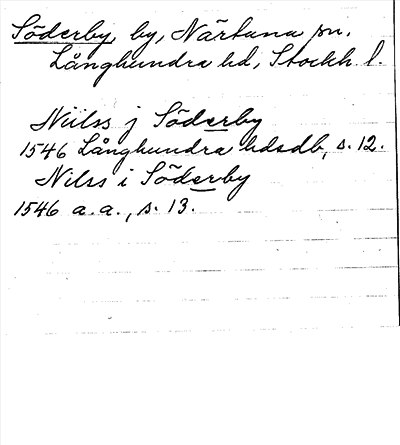 Söderby, by, Närtuna sn,
Långhundra hd, Stockh. l.
Niilss j Söderby
1546 Långhundra hdsdb, s. 12.
Nilss i Söderby
1546 a.a., s. 13.